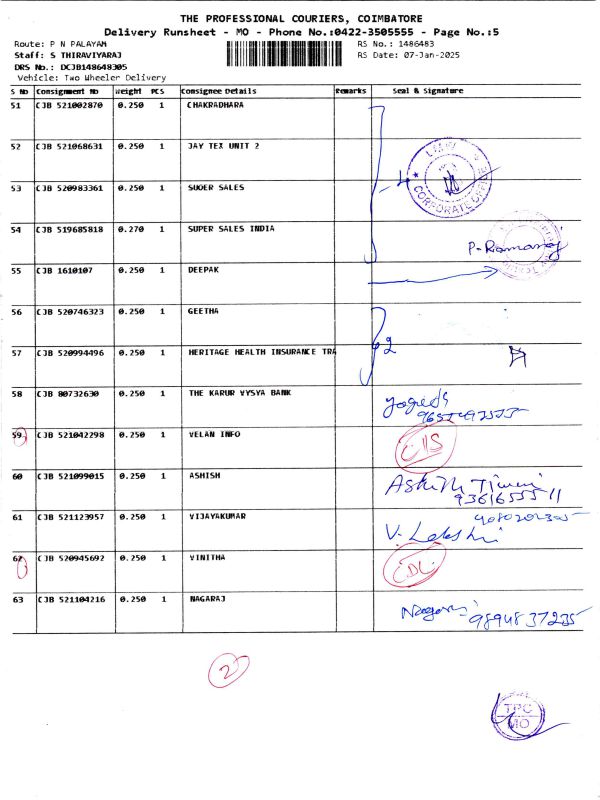 THE PROFESSIONAL COURIERS, COIMBATORE
Delivery Runsheet - MO - Phone No.:0422-3505555 - Page No.:5
Route: P N PALAYAM RS No.: 1486483
Staff: S THIRAVIYARAJ RS Date: 07-Jan-2025
DRS No.: DCJB148648305
Vehicle: Two Wheeler Delivery
S No Consignment No Weight PCS Consignee Details Remarks Seal & Signature
51 CJB 521002870 0.250 1 CHAKRADHARA
52 CJB 521068631 0.250 1 JAY TEX UNIT 2
4
CORPORATE OFFICE
53 CJB 520983361 0.250 1 SUOER SALES
54 CJB 519685818 0.270 1 SUPER SALES INDIA
P. Ramaraj
55 CJB 1610107 0.250 1 DEEPAK
56 CJB 520746323 0.250 1 GEETHA
2
57 CJB 520994496 0.250 1 HERITAGE HEALTH INSURANCE TRA
58 CJB 80732630 0.250 1 THE KARUR VYSYA BANK
59 CJB 521042298 0.250 1 VELAN INFO
60 CJB 521099015 0.250 1 ASHISH
9361655511
61 CJB 521123957 0.250 1 VIJAYAKUMAR
62 CJB 520945692 0.250 1 VINITHA
CDL
63 CJB 521104216 0.250 1 NAGARAJ
Nagaraj 9894837235
2
TPC
MO